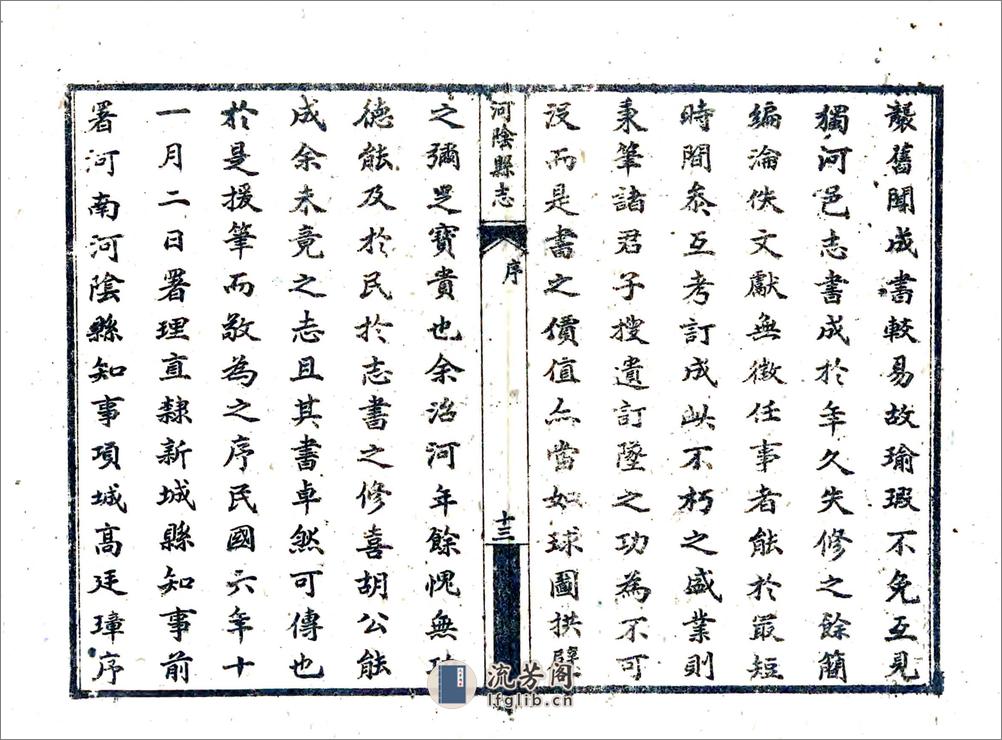 襲舊聞成書較易故瑜瑕不免互見
獨河邑志書成於年久失修之餘簡
編淪佚文獻無徵任事者能於最短
時間叅互考訂成此不朽之盛業則
秉筆諸君子搜遺訂墜之功為不可
沒而是書之價值亦當如球圖拱璧
河陰縣志
序
十三
之彌足寶貴也余治河年餘愧無功
德能及於民於志書之修喜胡公能
成余未竟之志且其書卓然可傳也
於是援筆而敬為之序民國六年十
一月二日署理直隸新城縣知事前
署河南河陰縣知事項城高廷璋序
流芳阁
lfglib.cn